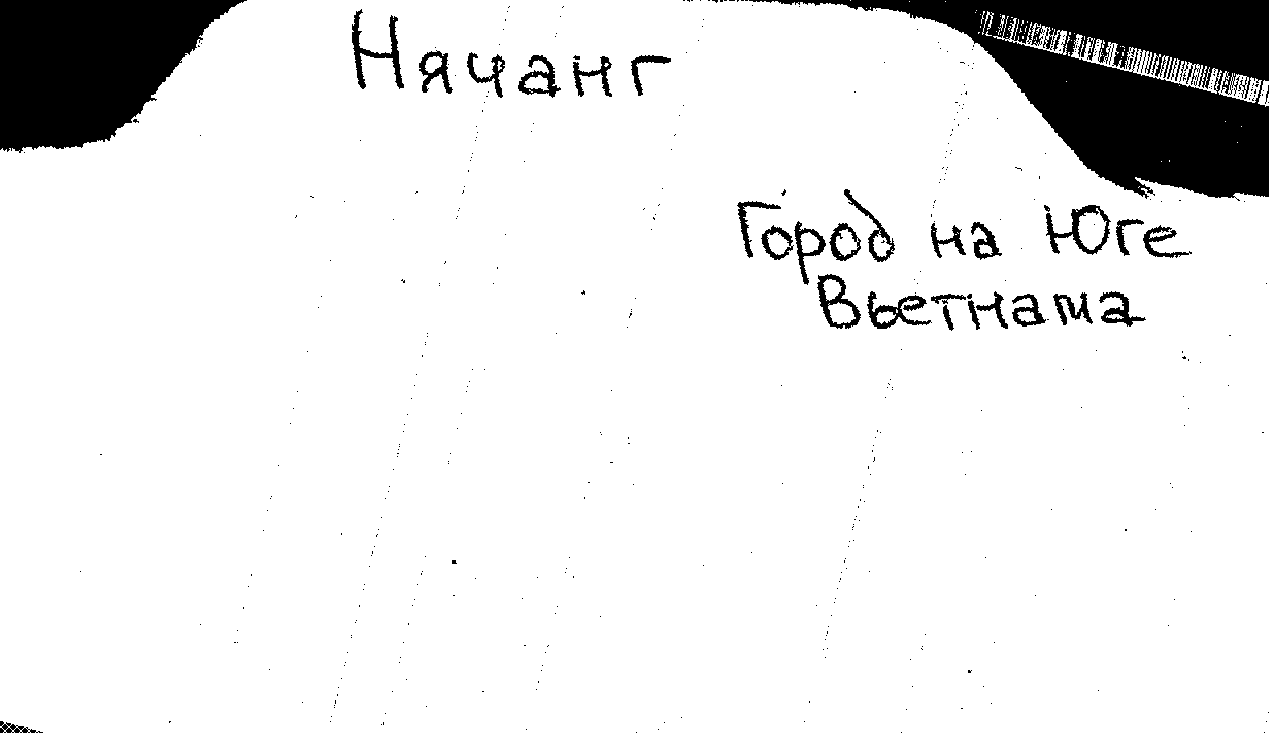 Нячанг
Город на Юге
Вьетнама